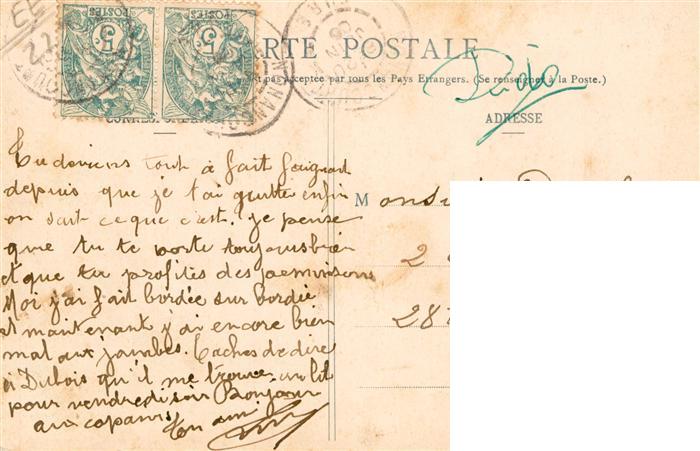 CARTE POSTALE
est pas acceptée par tous les Pays Etrangers. (Se renseigner à la Poste.)
ADRESSE
POSTES
5
POSTES
5
Tu deviens tout à fait faignant
depuis que je t'ai quitté enfin
on sait ce que c'est. Je pense
que tu te porte toujours bien
et que tu profites des permissions
Moi j'ai fait bordée sur bordée
et maintenant j'ai encore bien
mal aux jambes. Taches de dire
à Dubois qu'il me trouve un lit
pour vendredi soir Bonjour
aux copains Ton ami
Monsi
2
28